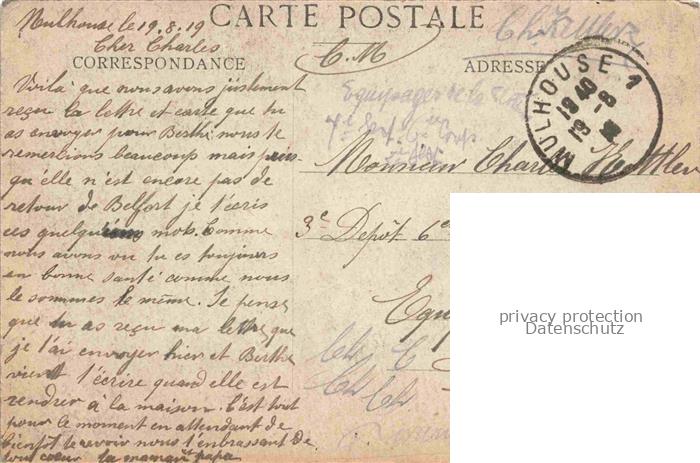 Mulhouse le 19.8.19
CARTE POSTALE
Cher Charles
C. M
CORRESPONDANCE
ADRESSE
MULHOUSE 1
19 40
19 -8
Voilà que nous avons justement
reçu la lettre et carte que tu
as envoyer pour Berthe nous te
remercions beaucoup mais puis-
qu'elle n'est encore pas de
retour de Belfort je t'écris
ces quelques mots. Comme
nous avons vu tu es toujours
en bonne santé comme nous
le sommes le même. Je pense
que tu as reçu ma lettre que
je t'ai envoyer hier et Berthe
vient t'écrire quand elle est
rendrer à la maison. C'est tout
pour le moment en attendant de
bientot te revoir nous t'embrassant de
tout coeur ta maman et papa
Equipages de la
Monsieur Charles
3e Dépôt 6e
Equ
privacy protection
Datenschutz